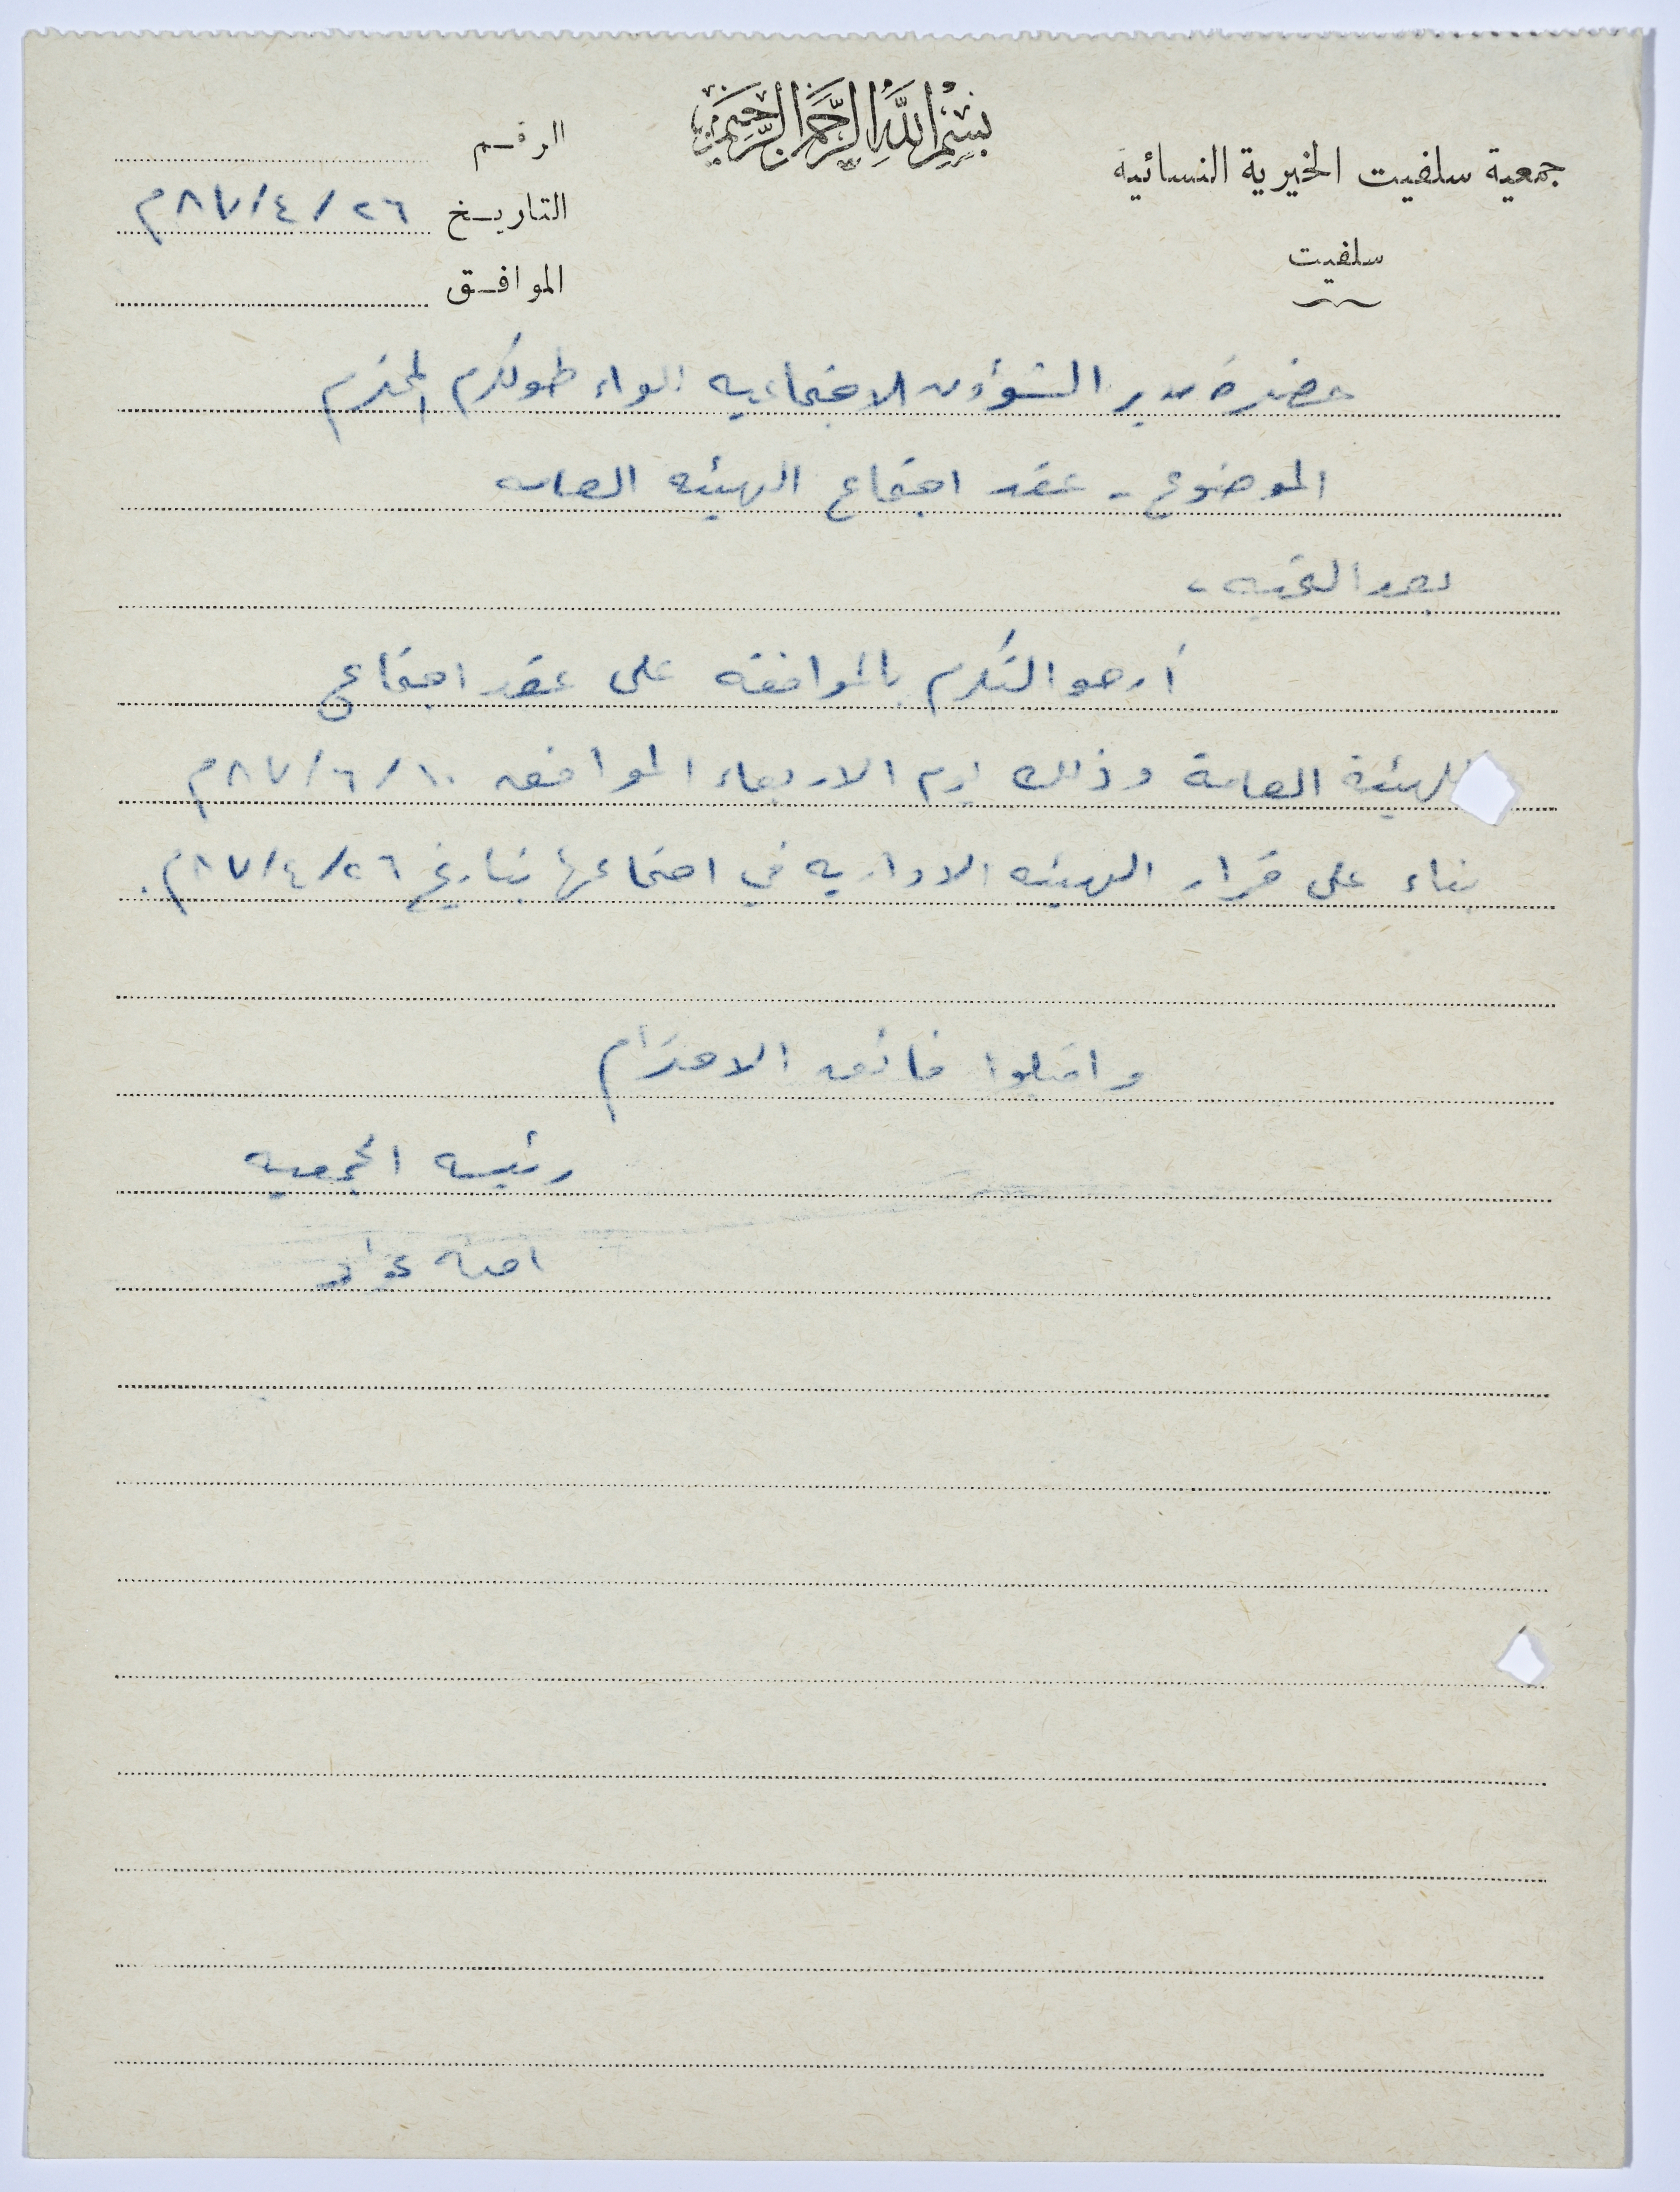 بسم الله الرحمن الرحيم
جمعية سلفيت الخيرية النسائية
سلفيت
الرقم
التاريخ ٢٦/٤/٨٧م
الموافق
حضرة مدير الشؤون الاجتماعيه لواء طولكرم المحترم
الموضوع - عقد اجتماع الهيئه العامه
بعد التحيه ،
أرجو التكرم بالموافقه على عقد اجتماع
للهيئة العامة وذلك يوم الاربعاء الموافق ١٠/٦/٨٧م
بناء على قرار الهيئه الاداريه في اجتماعها بتاريخ ٢٦/٤/٨٧م.
واقبلوا فائق الاحترام
رئيسه الجمعيه
امنه